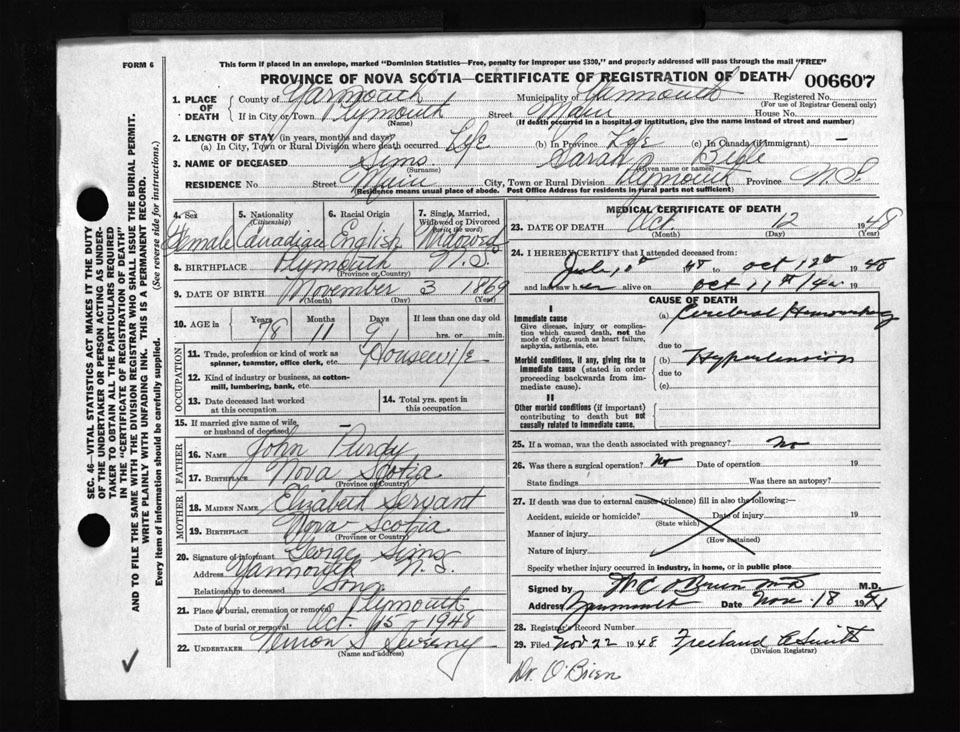 FORM 6
This form if placed in an envelope, marked "Dominion Statistics—Free, penalty for improper use $300," and properly addressed will pass through the mail "FREE"
PROVINCE OF NOVA SCOTIA—CERTIFICATE OF REGISTRATION OF DEATH 006607
1. PLACE OF DEATH County of Yarmouth Municipality of Yarmouth Registered No.
(For use of Registrar General only)
If in City or Town Plymouth Street Main House No.
(Name) (If death occurred in a hospital or institution, give the name instead of street and number)
2. LENGTH OF STAY (in years, months and days)
(a) In City, Town or Rural Division where death occurred Life (b) In Province Life (c) In Canada (if immigrant) —
3. NAME OF DECEASED Sims Sarah Belle
(Surname) (Given name or names)
RESIDENCE No. Street Main City, Town or Rural Division Plymouth Province N.S
(Residence means usual place of abode. Post Office Address for residents in rural parts not sufficient)
4. Sex Female
5. Nationality (Citizenship) Canadian
6. Racial Origin English
7. Single, Married, Widowed or Divorced (write the word) Widowed
8. BIRTHPLACE Plymouth N.S.
(Province or Country)
9. DATE OF BIRTH November 3 1869
(Month) (Day) (Year)
10. AGE in Years 78 Months 11 Days 9 If less than one day old
hrs. or min.
OCCUPATION
11. Trade, profession or kind of work as spinner, teamster, office clerk, etc. Housewife
12. Kind of industry or business, as cotton-mill, lumbering, bank, etc.
13. Date deceased last worked at this occupation
14. Total yrs. spent in this occupation
15. If married give name of wife, or husband of deceased —
FATHER
16. Name John Purdy
17. Birthplace Nova Scotia
(Province or Country)
MOTHER
18. MAIDEN NAME Elizabeth Servant
19. BIRTHPLACE Nova Scotia
(Province or Country)
20. Signature of informant George Sims
Address Yarmouth N.S.
Relationship to deceased Son
21. Place of burial, cremation or removal Plymouth
Date of burial or removal Oct. 15 1948
22. UNDERTAKER Vernon S Sweeny
(Name and address)
MEDICAL CERTIFICATE OF DEATH
23. DATE OF DEATH Oct 12 1948
(Month) (Day) (Year)
24. I HEREBY CERTIFY that I attended deceased from:
48 to Oct 12th 1948
and last saw her alive on Oct 11th 19
CAUSE OF DEATH
I
Immediate cause (a) Cerebral Hemorrhage
Give disease, injury or complication which caused death, not the mode of dying, such as heart failure, asphyxia, asthenia, etc.
due to
Morbid conditions, if any, giving rise to immediate cause (stated in order proceeding backwards from immediate cause). (b) Hypertension
due to
(c)
II
Other morbid conditions (if important) contributing to death but not causally related to immediate cause.
25. If a woman, was the death associated with pregnancy? No
26. Was there a surgical operation? No Date of operation 19
State findings Was there an autopsy?
27. If death was due to external causes (violence) fill in also the following:—
Accident, suicide or homicide? Date of injury 19
(State which)
Manner of injury
(How sustained)
Nature of injury
Specify whether injury occurred in industry, in home, or in public place
Signed by W C O'Brien M.D. M.D.
Address Yarmouth Date Nov. 18 19
28. Registrar's Record Number
29. Filed Nov 22 1948 Freeland A Smith
(Division Registrar)
Dr. O'Brien
SEC. 46—VITAL STATISTICS ACT MAKES IT THE DUTY
OF THE UNDERTAKER OR PERSON ACTING AS UNDER-
TAKER TO OBTAIN ALL THE PARTICULARS REQUIRED
IN THE "CERTIFICATE OF REGISTRATION OF DEATH"
AND TO FILE THE SAME WITH THE DIVISION REGISTRAR WHO SHALL ISSUE THE BURIAL PERMIT.
WRITE PLAINLY WITH UNFADING INK. THIS IS A PERMANENT RECORD.
Every item of information should be carefully supplied. (See reverse side for instructions.)